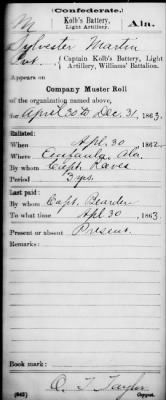 (Confederate.)
M Kolb's Battery, Light Artillery. Ala.
Sylvester Martin
Pvt., Captain Kolb's Battery, Light Artillery, Williams' Battalion.
Appears on
Company Muster Roll
of the organization named above,
for April 30 to Dec. 31, 1863.
Enlisted:
When Apl. 30, 1862
Where Eufaula Ala.
By whom Capt. Reeves
Period 3 yrs.
Last paid:
By whom Capt. Bearden
To what time Apl 30, 1863.
Present or absent Present
Remarks:
Book mark:
O. T. Taylor
(642) Copyist.